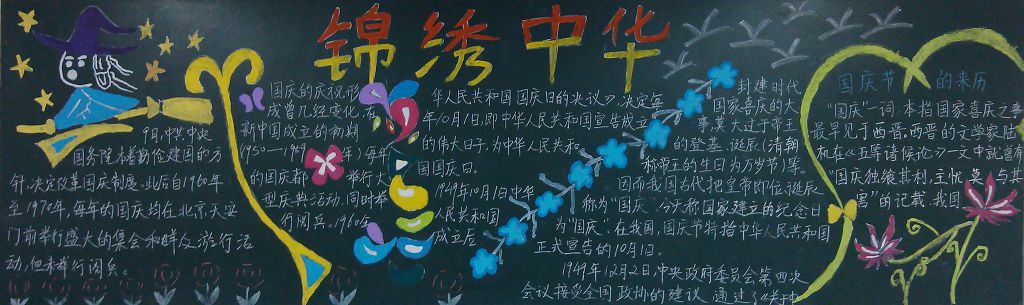 锦绣中华
国庆节的来历
"国庆"一词,本指国家喜庆之事
最早见于西晋。西晋的文学家陆
机在《五等诸侯论》一文中就曾有
"国庆独飨其利,主忧莫与其
害"的记载、我国
封建时代、
国家喜庆的大
事,莫大过于帝王
的登基、诞辰(清朝
称帝王的生日为万岁节)等。
因而我国古代把皇帝即位、诞辰
称为"国庆"。今天称国家建立的纪念日
为"国庆"。在我国,国庆节特指中华人民共和国
正式宣告的10月1日。
1949年12月2日,中央政府委员会第四次
会议接受全国政协的建议 通过了《关于中
华人民共和国国庆日的决议》,决定每
年10月1日,即中华人民共和国宣告成立
的伟大日子,为中华人民共和
国国庆日。
1949年10月1日中华
人民共和国
成立后
国庆的庆祝形
式曾几经变化。在
新中国成立的初期
(1950—1959年)每年
的国庆都举行大
型庆典活动,同时举
行阅兵。1960年
9月,中共中央
国务院本着勤俭建国的方
针,决定改革国庆制度。此后,自1960年
至1970年,每年的国庆均在北京天安
门前举行盛大的集会和群众游行活
动,但未举行阅兵。